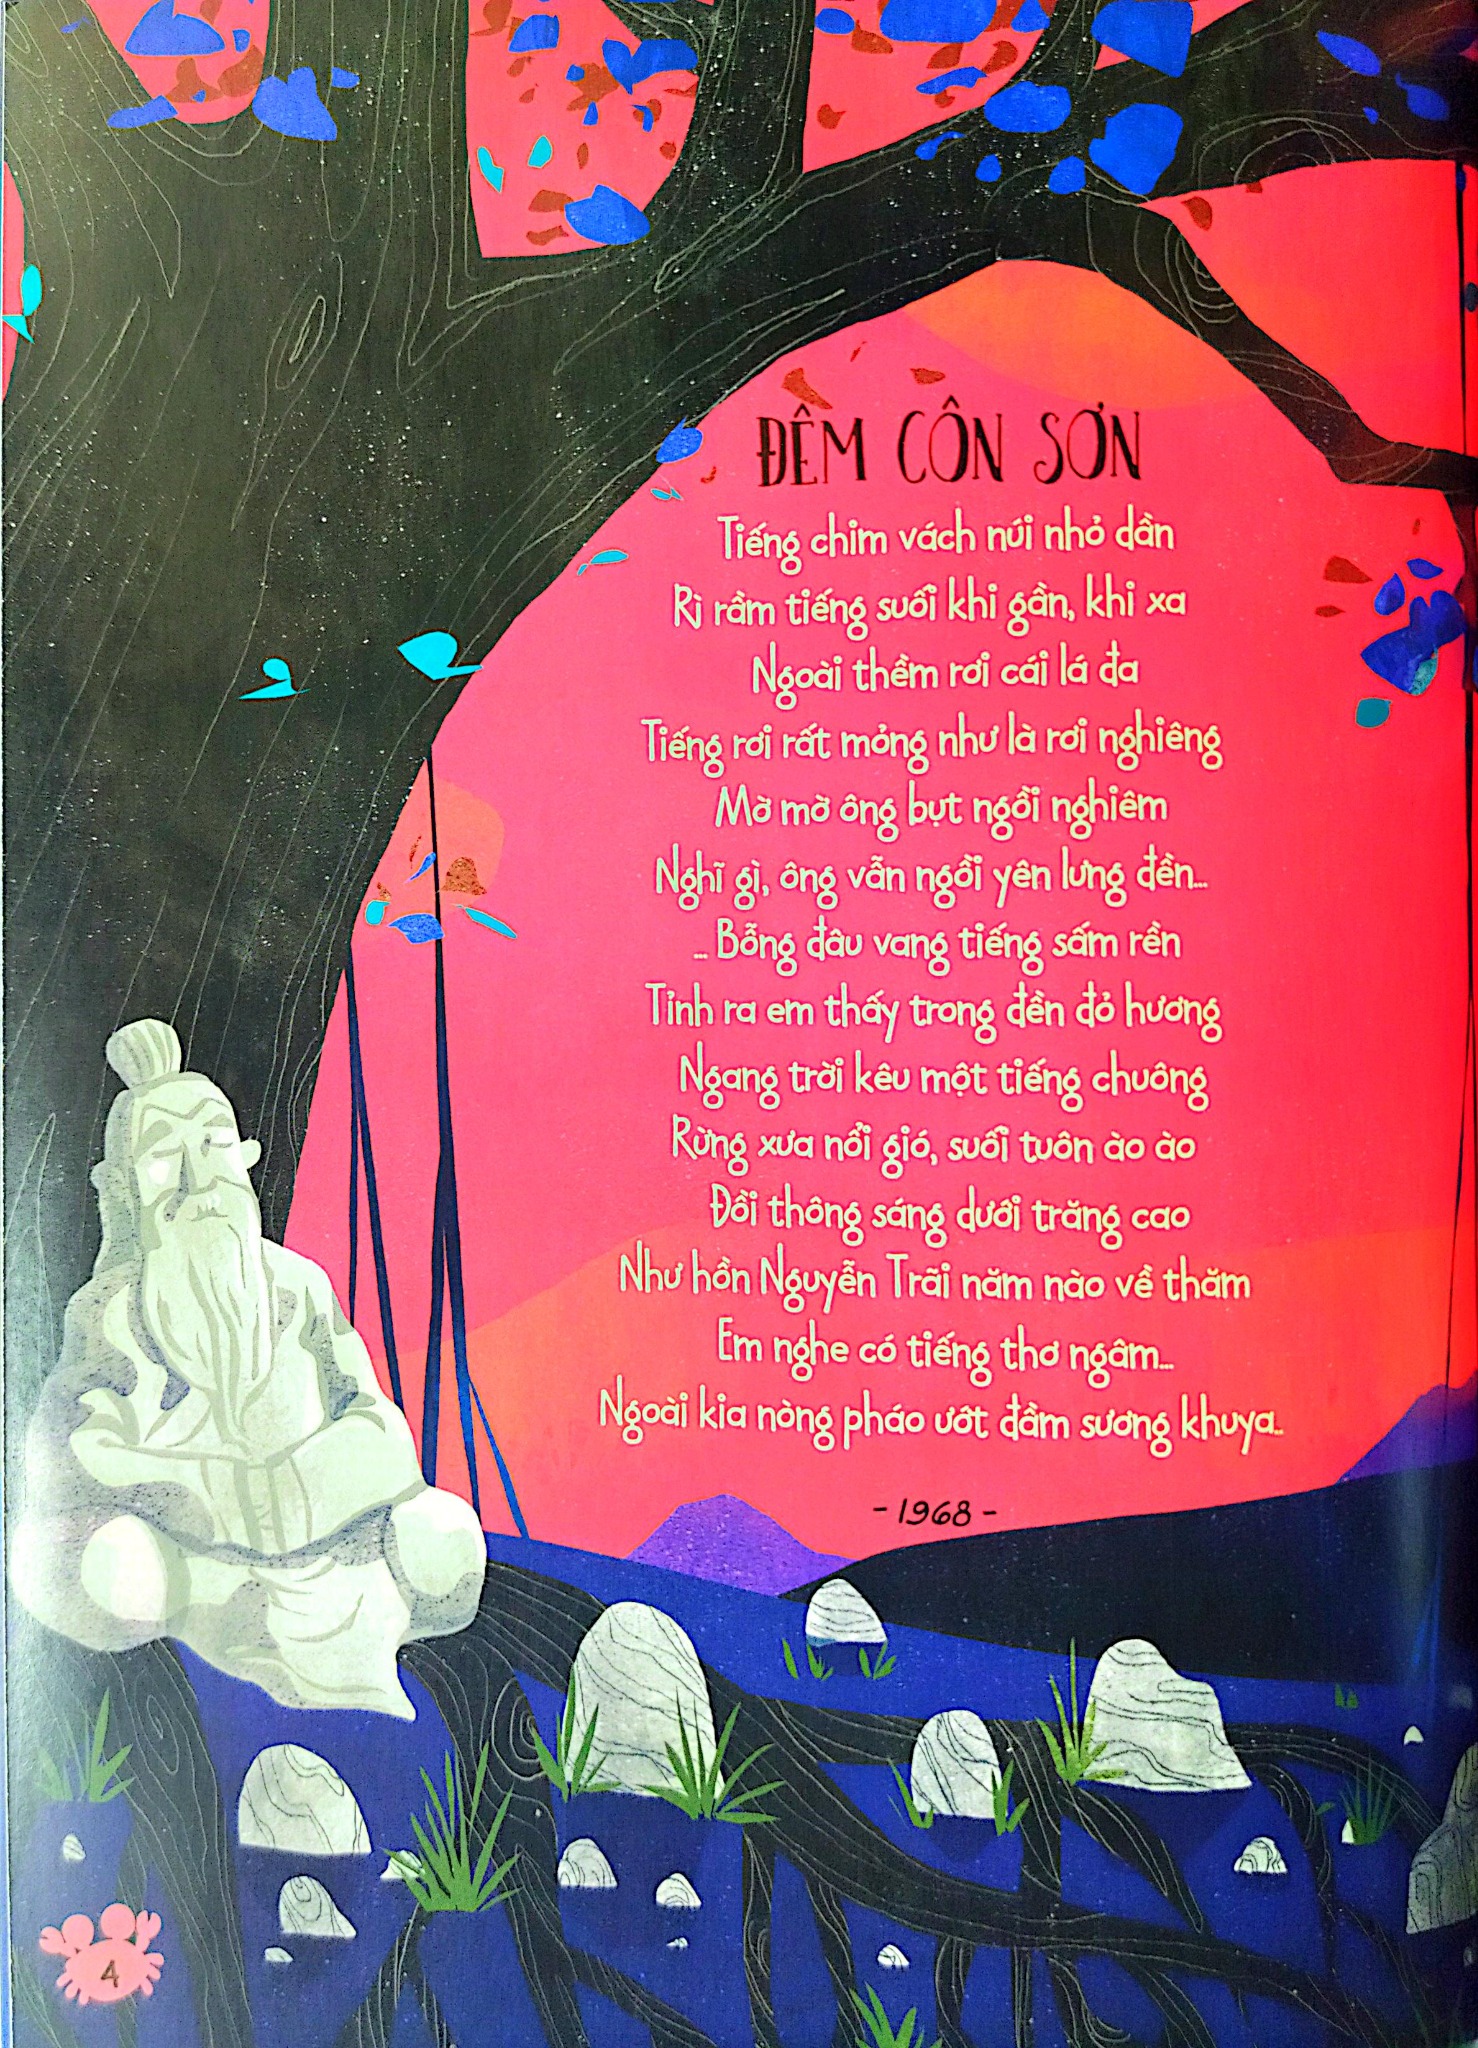 ĐÊM CÔN SƠN
Tiếng chim vách núi nhỏ dần
Rì rầm tiếng suối khi gần, khi xa
Ngoài thềm rơi cái lá đa
Tiếng rơi rất mỏng như là rơi nghiêng
Mờ mờ ông bụt ngồi nghiêm
Nghĩ gì, ông vẫn ngồi yên lưng đền...
... Bỗng đâu vang tiếng sấm rền
Tỉnh ra em thấy trong đền đỏ hương
Ngang trời kêu một tiếng chuông
Rừng xưa nổi gió, suối tuôn ào ào
Đồi thông sáng dưới trăng cao
Như hồn Nguyễn Trãi năm nào về thăm
Em nghe có tiếng thơ ngâm...
Ngoài kia nòng pháo ướt đầm sương khuya..
- 1968 -
4